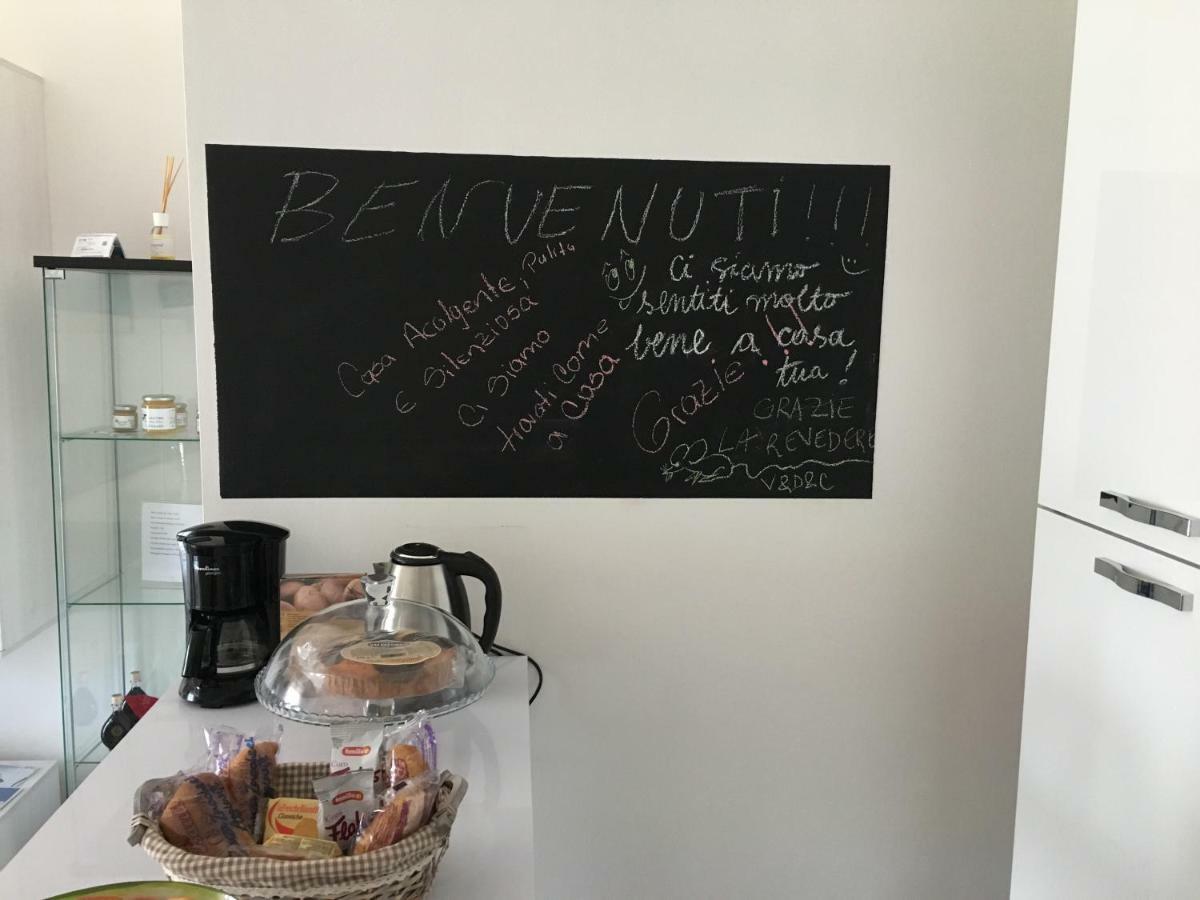 BENVENUTI!!!
Casa Acolgente, Pulita
e Silenziosa
Ci Siamo
trovati Come
a Casa
Grazie!!
Ci siamo
sentiti molto
bene a casa
tua!
GRAZIE
LA REVEDERE
V&D&C